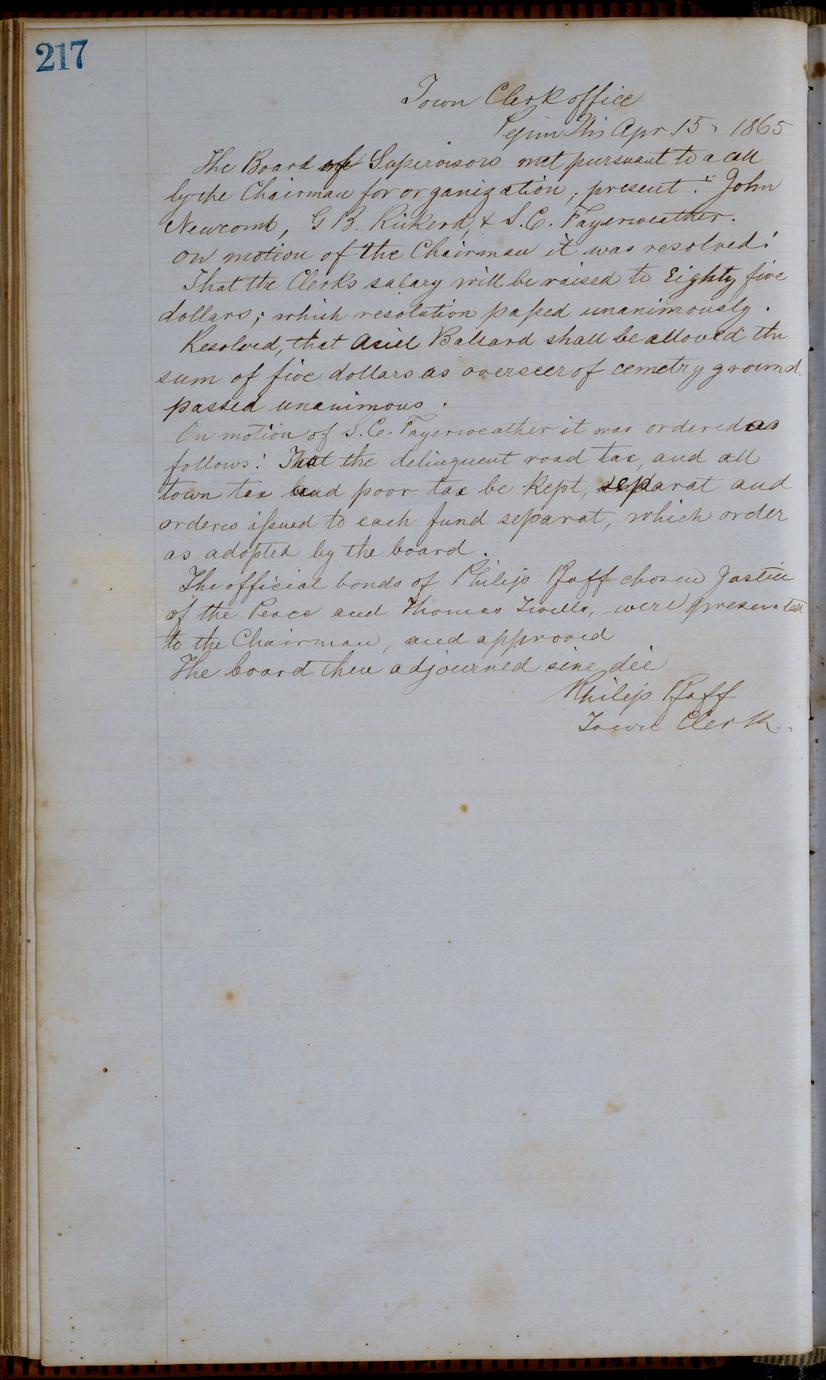 217
Town Clerk office
Pepin Wis Apr 15, 1865
The Board of Supervisors met pursuant to a call
by the Chairman for organization; present: John
Newcomb, G B. Rickerd, & S. C. Fayerweather.
on motion of the Chairman it was resolved:
That the Clerks salary will be raised to Eighty five
dollars; which resolution passed unanimously.
Resolved, that Asiel Ballard shall be allowed the
sum of five dollars as overseer of cemetry ground
passed unanimous.
On motion of S. C. Fayerweather it was ordered as
follows: That the delinquent road tax, and all
town tax and poor tax be kept, separat and
orders issued to each fund separat, which order
as adopted by the board.
The official bonds of Philip Pfaff chosen Justice
of the Peace and Thomas were presented
to the Chairman, and approved
The board then adjourned sine die
Philip Pfaff
Town Clerk.